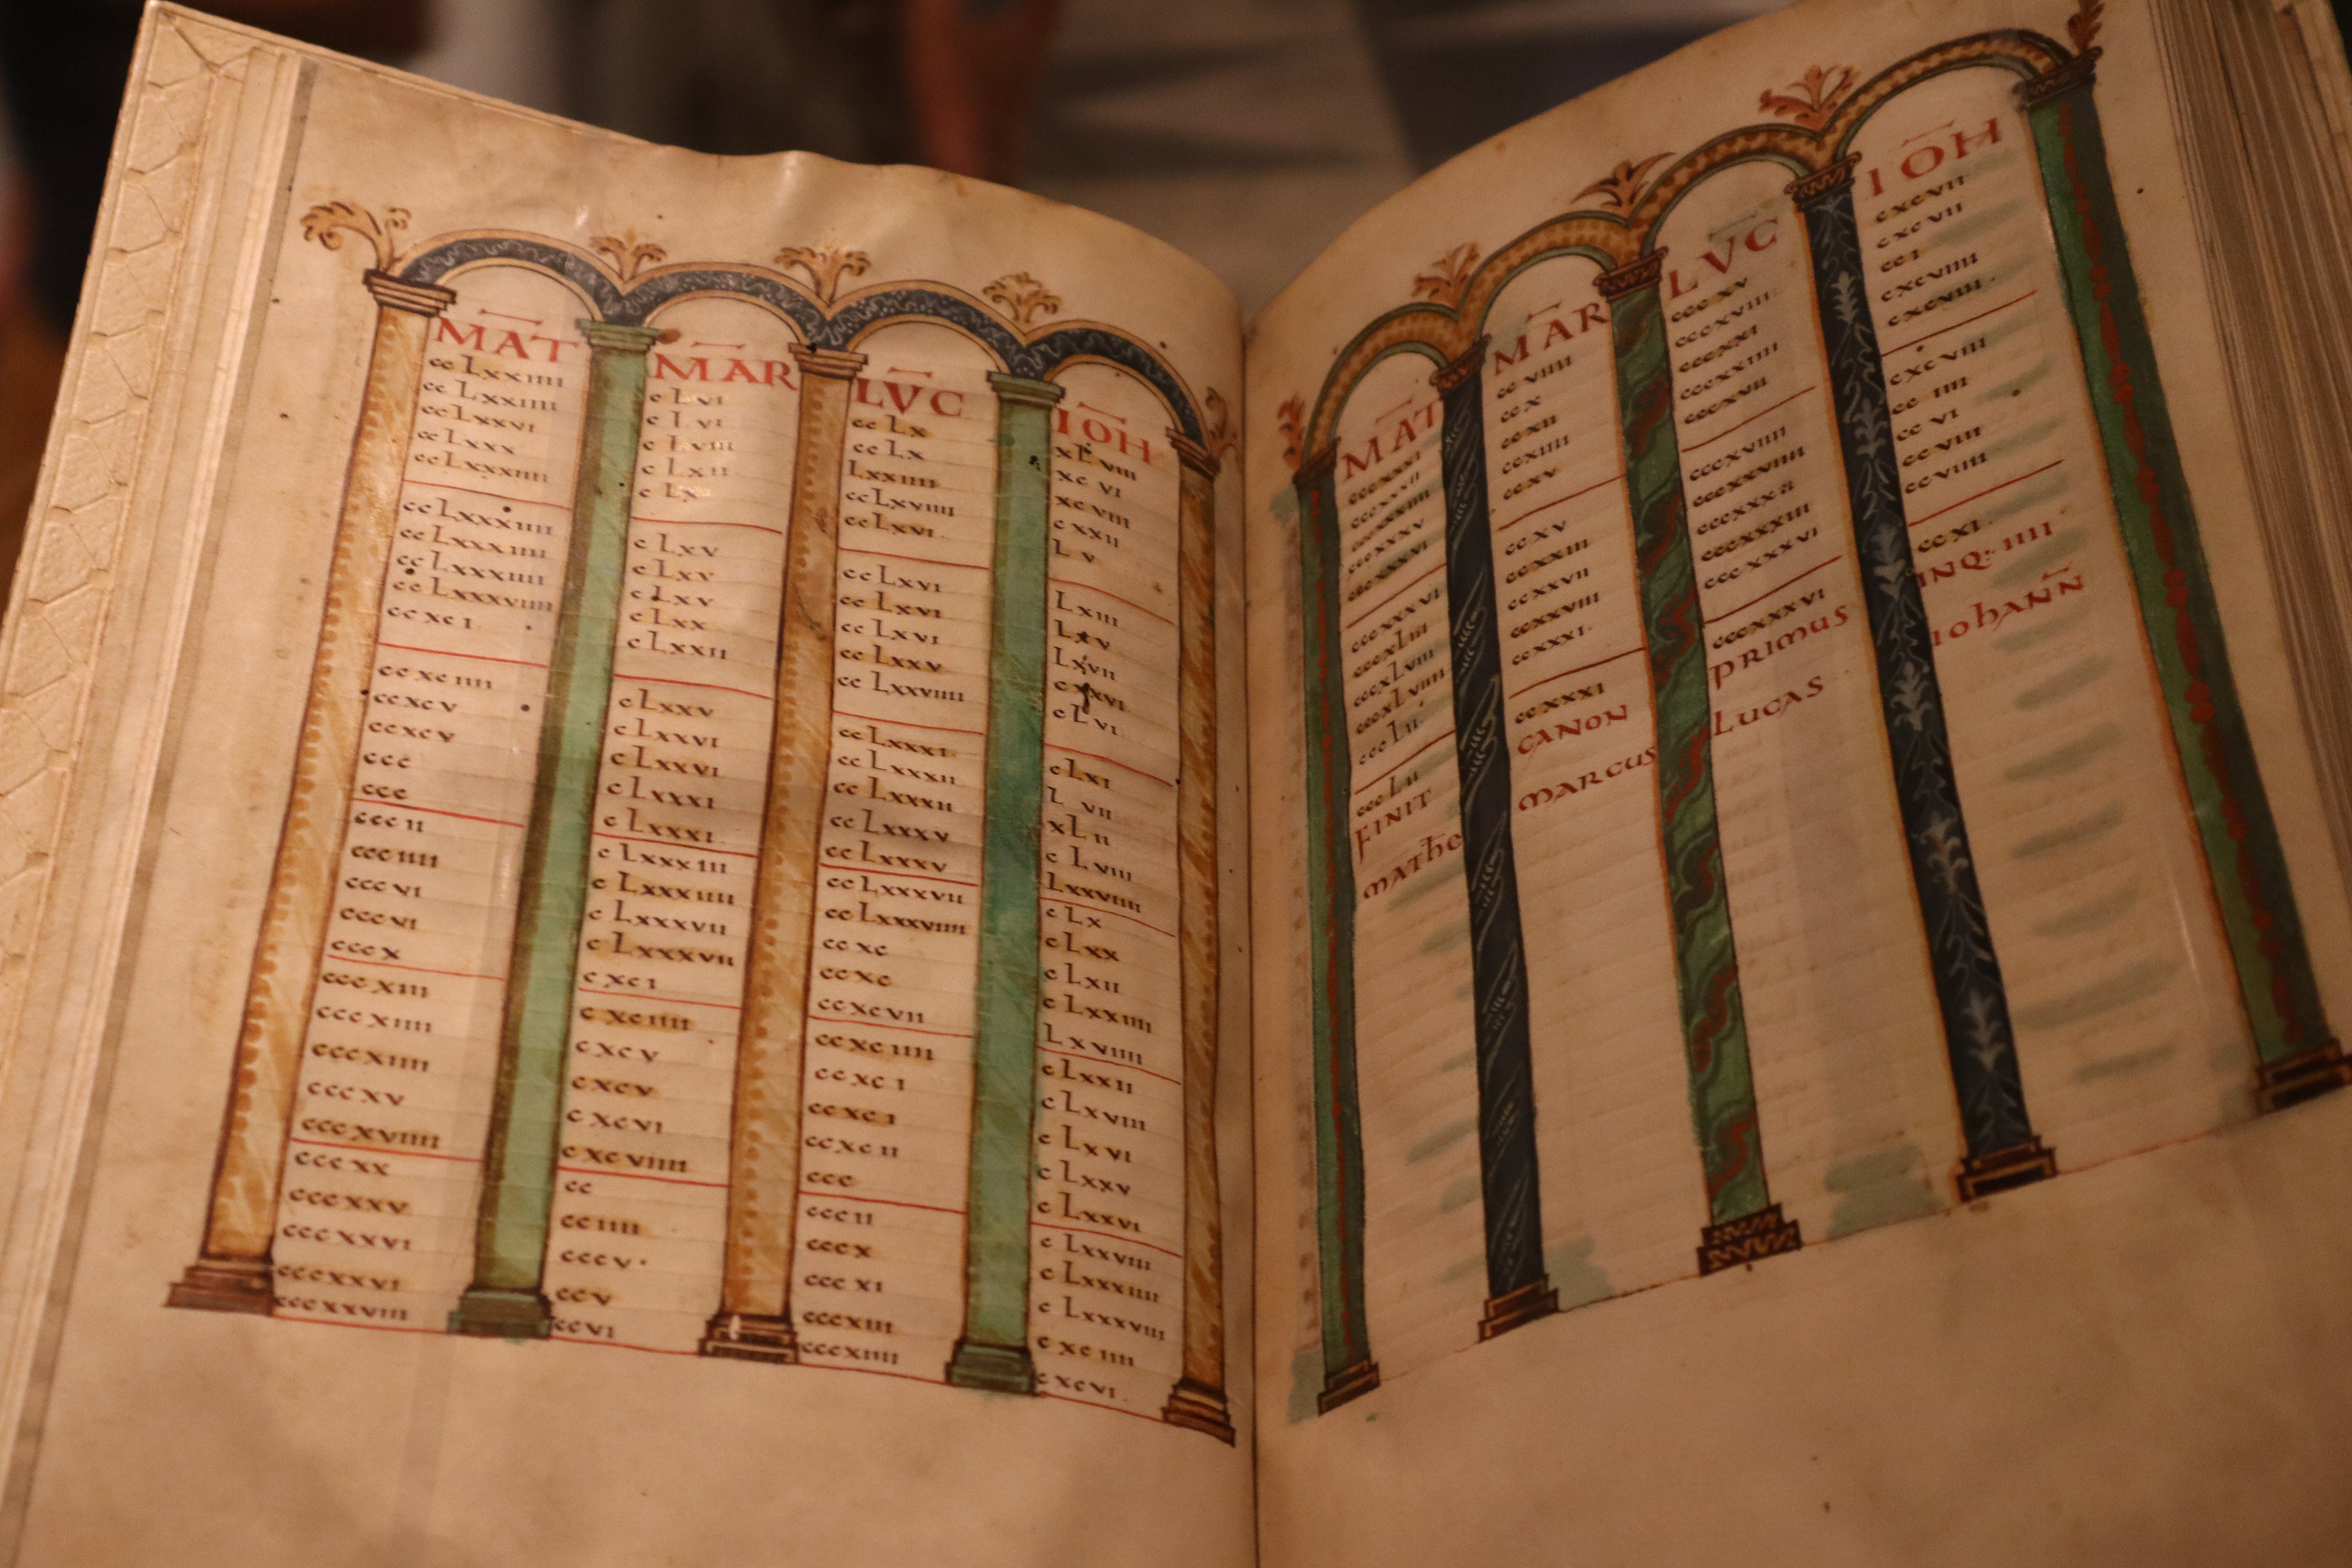 MAT
ccLxxiiii
ccLxxiiii
ccLxxvi
ccLxxx
ccLxxxiiii
ccLxxxiiii
ccLxxxiiii
ccLxxxiiii
ccLxxxviiii
ccxci
ccxciiii
ccxcv
ccxcv
ccc
ccc
cccii
ccciiii
cccvi
cccvi
cccx
cccxiii
cccxiiii
cccxiiii
cccxv
cccxviiii
cccxx
cccxxv
cccxxvi
cccxxvi
cccxxviii
MAR
cLvi
cLvi
cLviii
cLxii
cLx
cLxv
cLxv
cLxv
cLxx
cLxxii
cLxxv
cLxxvi
cLxxvi
cLxxxi
cLxxxi
cLxxxiii
cLxxxiiii
cLxxxvii
cLxxxvii
cxci
cxciiii
cxcv
cxcv
cxcvi
cxcviiii
cc
cciiii
cccv
ccv
ccvi
LVC
ccLx
ccLx
Lxxiiii
ccLxviiii
ccLxvi
ccLxvi
ccLxvi
ccLxvi
ccLxxv
ccLxxviiii
ccLxxxi
ccLxxxii
ccLxxxii
ccLxxxv
ccLxxxv
ccLxxxvii
ccLxxxviiii
ccxc
ccxc
ccxcvii
ccxciiii
ccxci
ccxci
ccxcii
ccc
cccii
cccx
cccxi
cccxiii
cccxiiii
IOH
xLviii
xcvi
xcviii
cxxii
Lv
Lxiii
Lxv
Lxvii
cxxvi
cLvi
cLxi
Lvii
xLii
cLviii
Lxxviiii
cLx
cLxx
cLxii
cLxxiiii
Lxviiii
cLxxii
cLxviii
cLxvi
cLxxv
cLxxvi
cLxxviii
cLxxxiiii
cLxxxviii
cxciiii
cxcvi
MAT
cccxxxi
cccxxxii
cccxxxiiii
cccxxxv
cccxxxvi
cccxxxvi
cccxLiii
cccxLviii
cccxLviiii
cccLii
cccLii
FINIT
mathe
MAR
ccviiii
ccx
ccxii
ccxiiii
ccxv
ccxv
ccxxiii
ccxxvii
ccxxviii
ccxxxi
ccxxxi
CANON
MARCUS
LVC
cccxv
cccxviii
cccxxi
cccxxiiii
cccxvii
cccxviiii
cccxxviiii
cccxxxii
cccxxxiii
cccxxxvi
cccxxxvi
PRIMUS
LUCAS
IOH
cxcvii
cxcvii
cci
cxcviiii
cxcviii
cxcviii
cciiii
ccvi
ccviii
ccviiii
ccxi
INQ: IIII
IOhANN